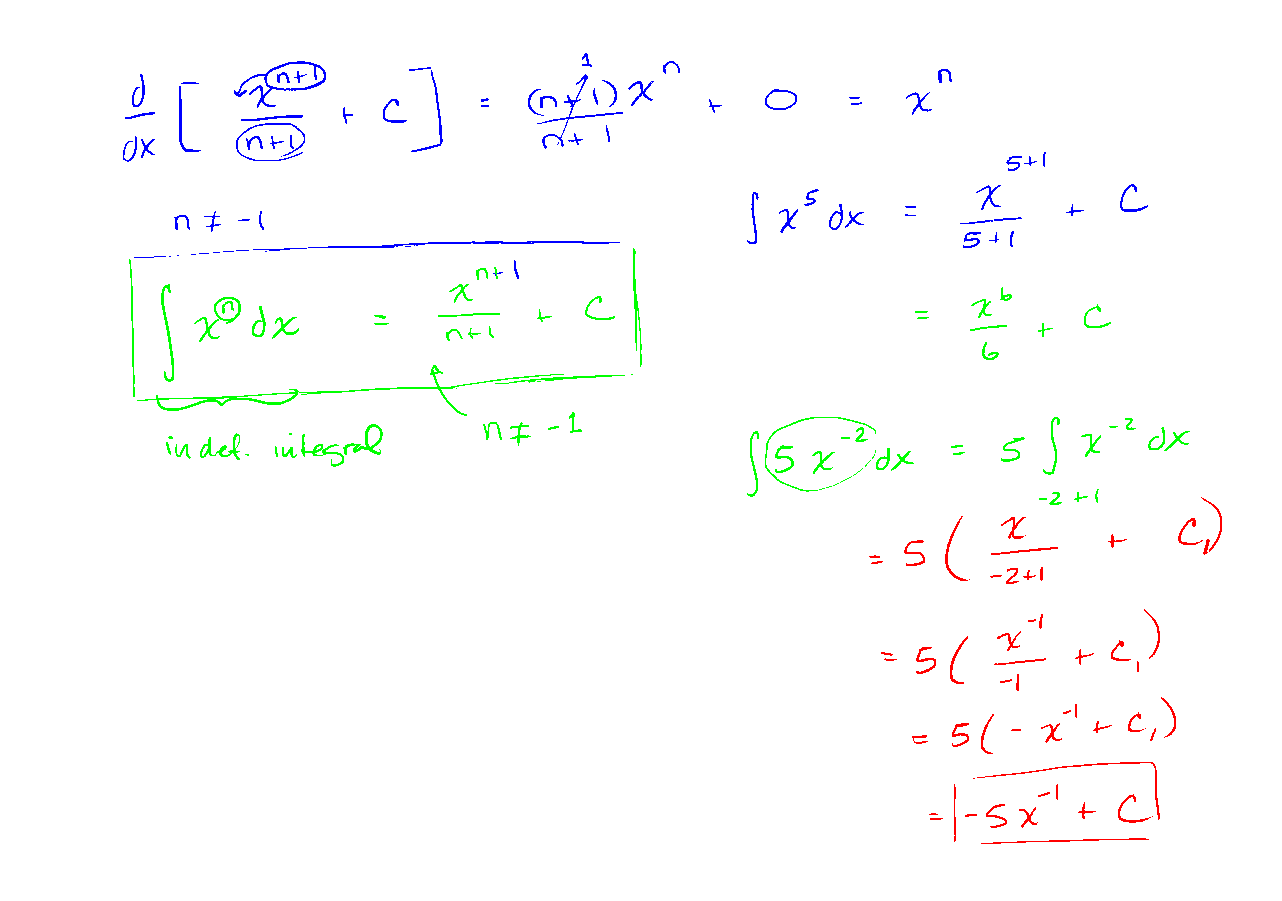 d/dx [ x^(n+1)/(n+1) + C ] = (n+1)x^n/(n+1) + 0 = x^n
1
n ≠ -1
∫ x^n dx = x^(n+1)/(n+1) + C
indef. integral
n ≠ -1
∫ x^5 dx = x^(5+1)/(5+1) + C
= x^6/6 + C
∫ 5 x^(-2) dx = 5 ∫ x^(-2) dx
= 5 ( x^(-2+1)/(-2+1) + C₁)
= 5 ( x^(-1)/(-1) + C₁)
= 5 ( - x^(-1) + C₁)
= -5x^(-1) + C